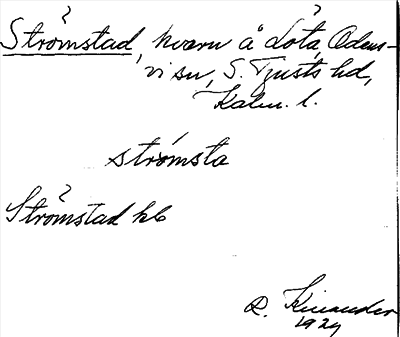 Strömstad, kvarn å Lötå, Odens-
vi sn, S. Tjusts hd,
Kalm. l.
strömsta
Strömstad hb
R. Kinander
1929